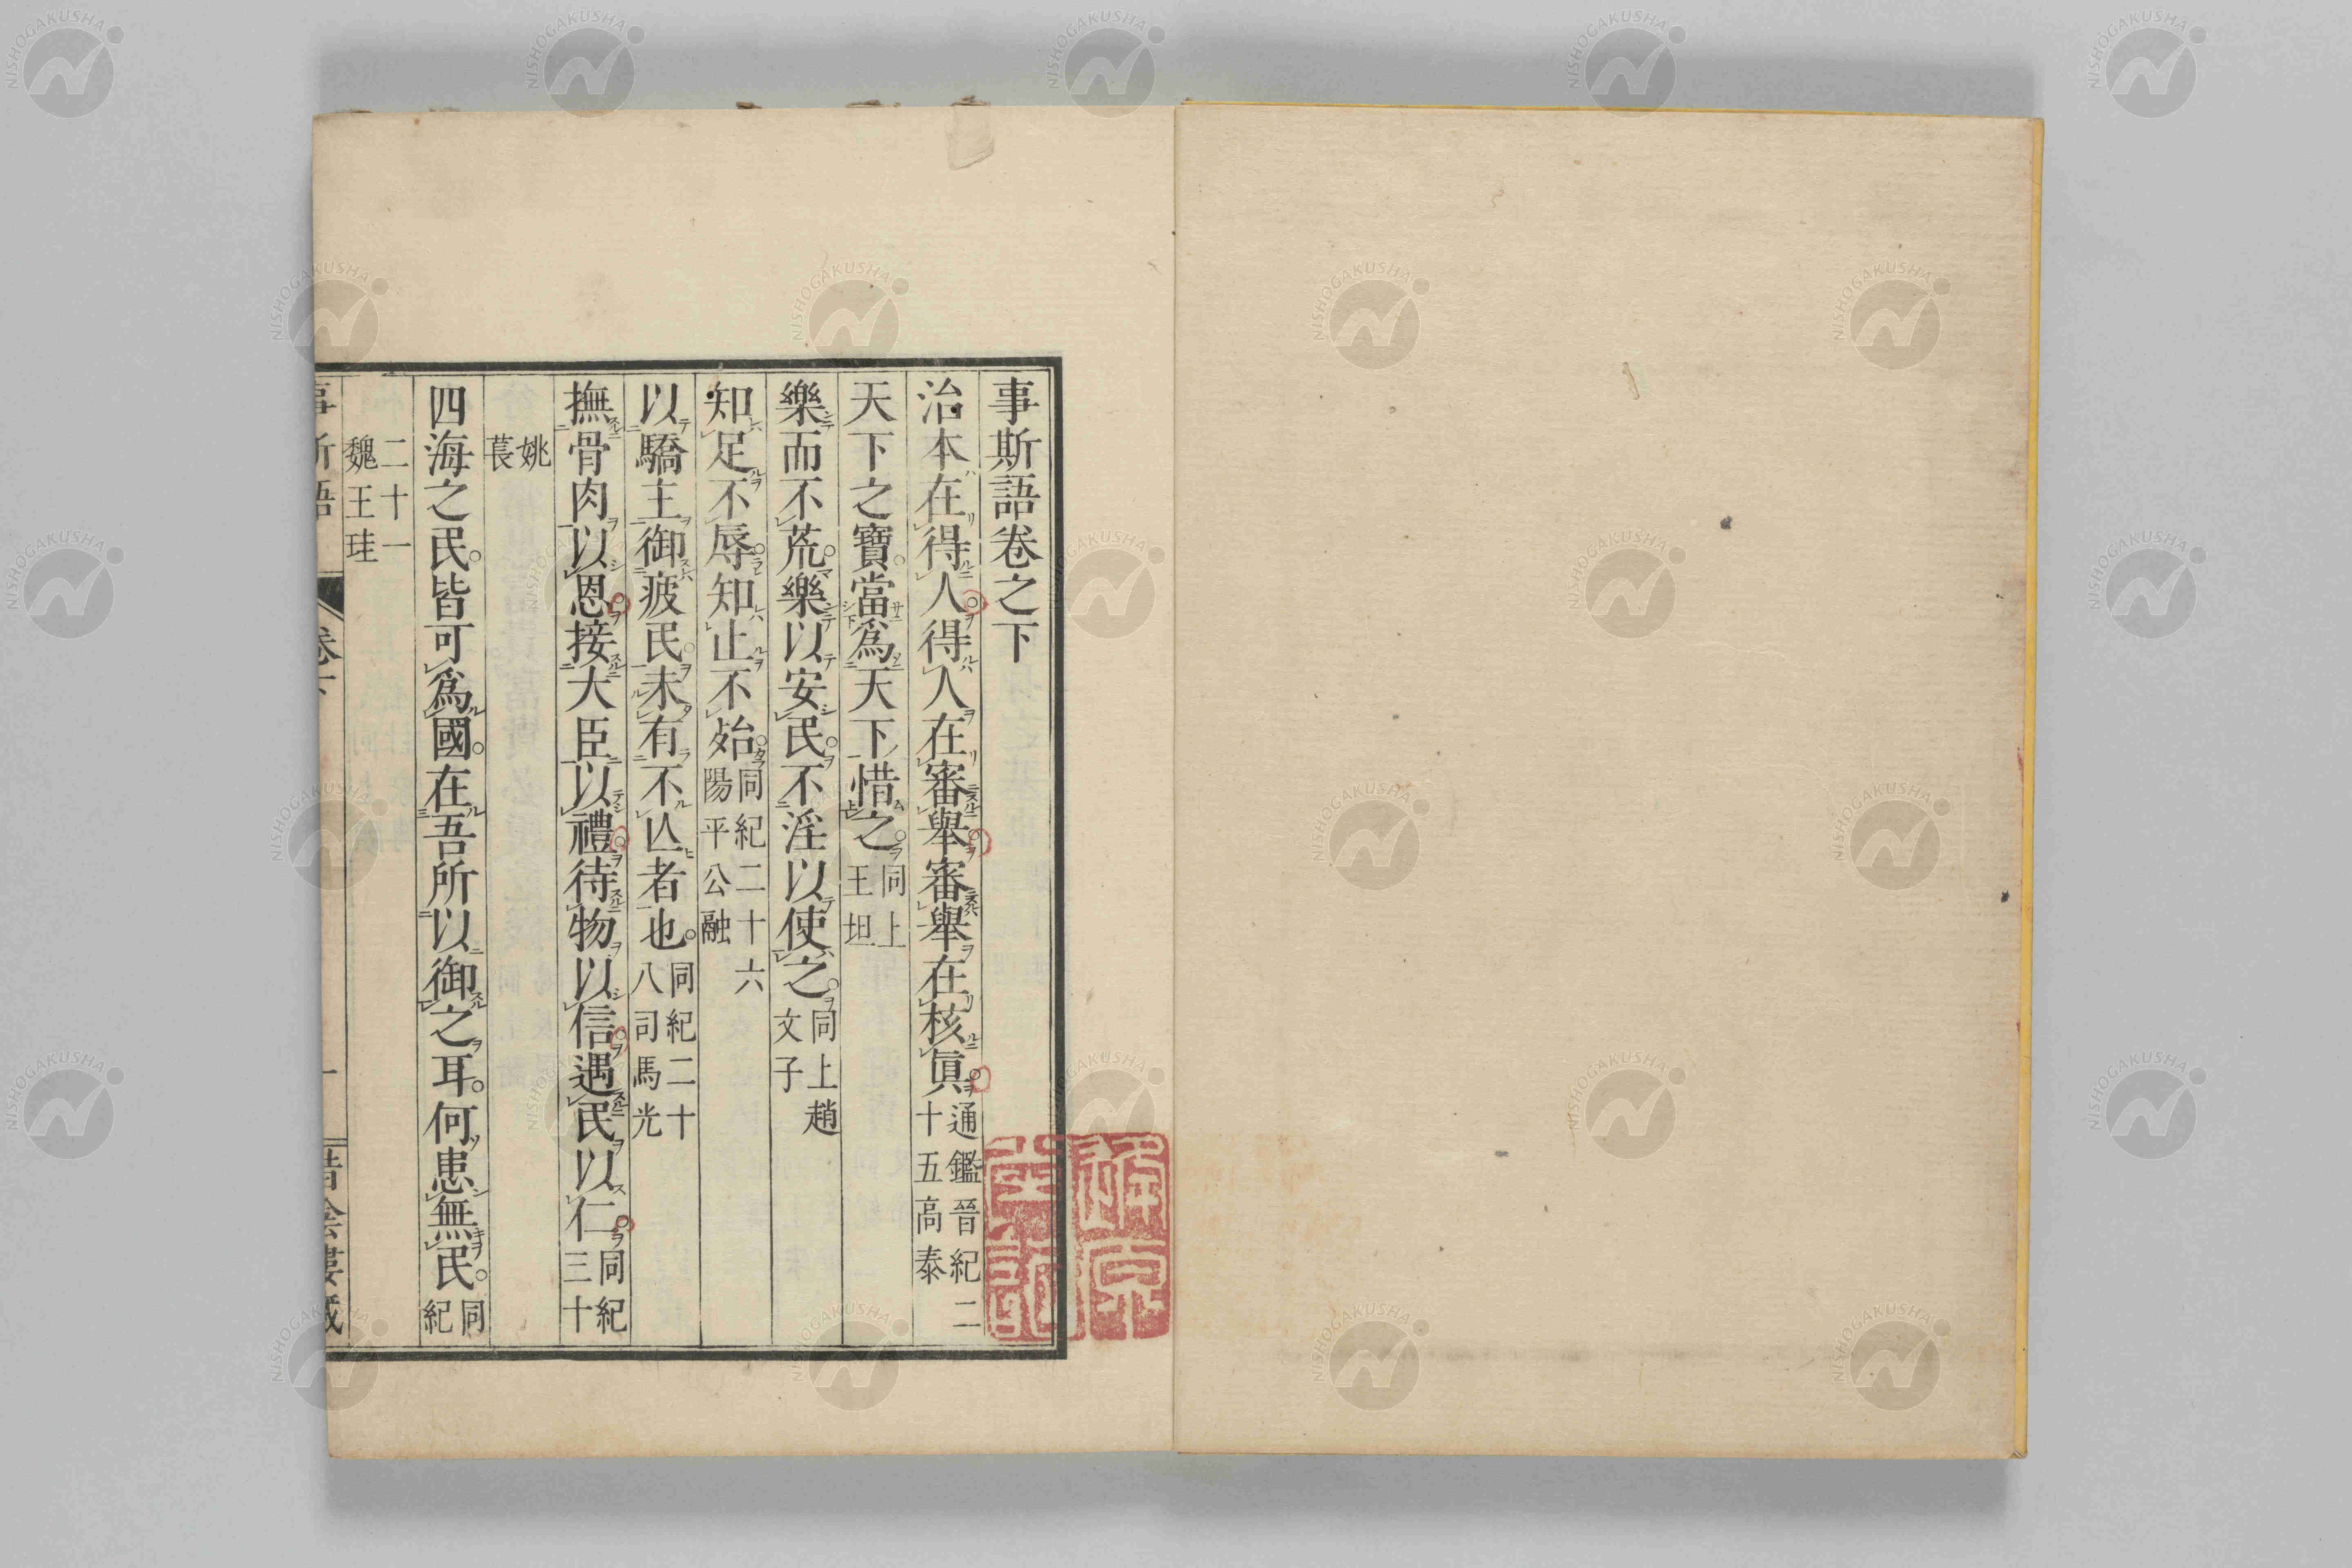 事斯語卷之下
治本在得人得人在審舉審舉在核眞通鑑晉紀二十五高泰
天下之寶當爲天下惜之同上王坦
樂而不荒樂以安民不淫以使之同上趙文子
知足不辱知止不殆同紀二十六陽平公融
以驕主御疲民未有不亾者也同紀二十八司馬光
撫骨肉以恩接大臣以禮待物以信遇民以仁同紀三十
姚萇
四海之民皆可爲國在吾所以御之耳何患無民同紀
二十一魏王珪
事斯語 卷下 一
NISHOGAKUSHA